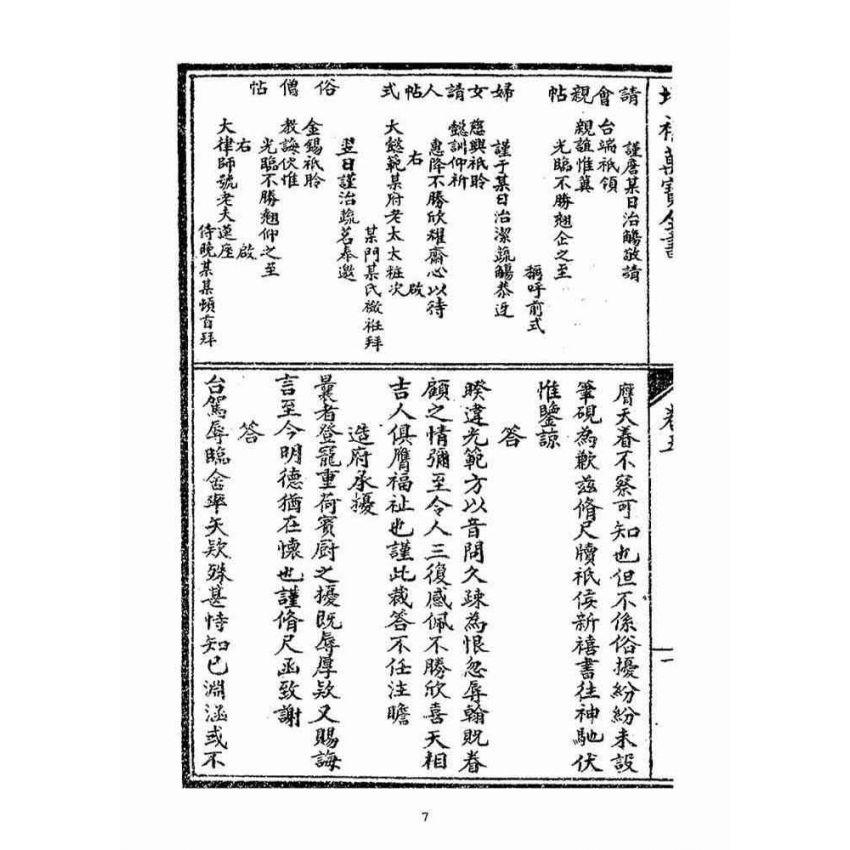 增補萬寶全書
卷五
一
請會親帖
謹詹某日治觴敬請
台端祇領
親誼惟冀
光臨不勝翹企之至
稱呼前式
婦女請人帖式
謹于某日治潔蔬觴恭迓
慈輿祇聆
懿訓仰祈
惠降不勝欣耀齋心以待
右 啟
大懿範某府老太太粧次
某門某氏襝衽拜
俗僧帖
翌日謹治蔬茗奉邀
金錫祇聆
教誨伏惟
光臨不勝翹仰之至
右 啟
大律師號老夫蓮座
侍晚某某頓首拜
膺天眷不察可知也但不係俗擾紛紛未設
筆硯為歉茲脩尺牘祇佞新禧書往神馳伏
惟鑒諒
答
睽違光範方以音問久疎為恨忽辱翰貺眷
顧之情彌至令人三復感佩不勝欣喜天相
吉人俱膺福祉也謹此裁答不任注瞻
造府承擾
曩者登寵重荷賓厨之擾既辱厚欵又賜誨
言至今明德猶在懷也謹脩尺函致謝
答
台駕辱臨倉卒失欵殊甚恃知已淵涵或不
7